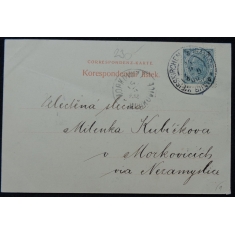 CORRESPONDENZ-KARTE
Korespondenční lístek
Velectěná slečna
Milenka Kubíčkova
v Morkovicích
via Nezamyslice